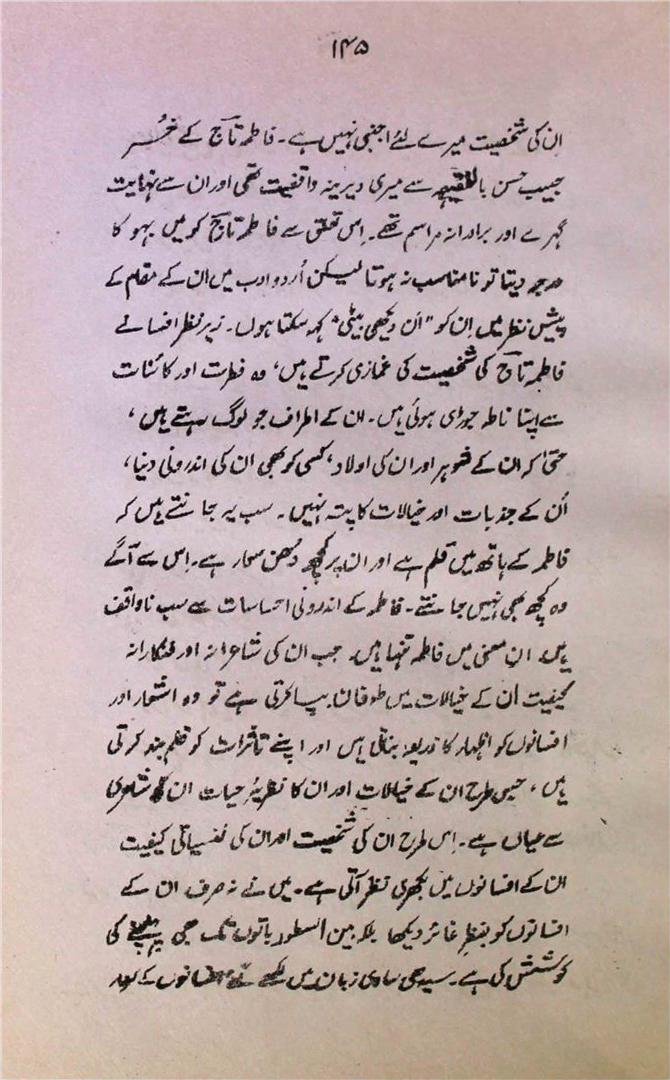 ۱۴۵
ان کی شخصیت میرے لئے اجنبی نہیں ہے۔ فاطمہ تاج کے خُسر
حبیب حسن بالفقیہہ سے میری دیرینہ واقفیت تھی اور ان سے نہایت
گہرے اور برادرانہ مراسم تھے۔ اِس تعلق سے فاطمہ تاج کو میں بہو کا
درجہ دیتا تو نا مناسب نہ ہوتا لیکن اُردو ادب میں ان کے مقام کے
پیشِ نظر میں اِن کو "اَن دیکھی بیٹی" کہہ سکتا ہوں۔ زیرِ نظر افسانے
فاطمہ تاج کی شخصیت کی غمازی کرتے ہیں، وہ فطرت اور کائنات
سے اپنا ناطہ جوڑی ہوئی ہیں۔ ان کے اطراف جو لوگ رہتے ہیں،
حتیٰ کہ ان کے شوہر اور ان کی اولاد، کسی کو بھی ان کی اندرونی دنیا،
اُن کے جذبات اور خیالات کا پتہ نہیں۔ سب یہ جانتے ہیں کہ
فاطمہ کے ہاتھ میں قلم ہے اور ان پر کچھ دُھن سوار ہے۔ اِس سے آگے
وہ کچھ بھی نہیں جانتے۔ فاطمہ کے اندرونی احساسات سے سب ناواقف
ہیں۔ اِن معنی میں فاطمہ تنہا ہیں۔ جب ان کی شاعرانہ اور فنکارانہ
کیفیت اُن کے خیالات میں طوفان بپا کرتی ہے تو وہ اشعار اور
افسانوں کو اظہار کا ذریعہ بناتی ہیں اور اپنے تاثرات کو قلم بند کرتی
ہیں، جس طرح ان کے خیالات اور ان کا نظریۂ حیات ان کی شاعری
سے عیاں ہے۔ اِس طرح ان کی شخصیت اور ان کی نفسیاتی کیفیت
ان کے افسانوں میں بکھری نظر آتی ہے۔ میں نے نہ صرف ان کے
افسانوں کو بنظرِ غائر دیکھا بلکہ بین السطور باتوں تک بھی پہنچنے کی
کوشش کی ہے۔ سیدھی سادی زبان میں لکھے گئے افسانوں کے بعد